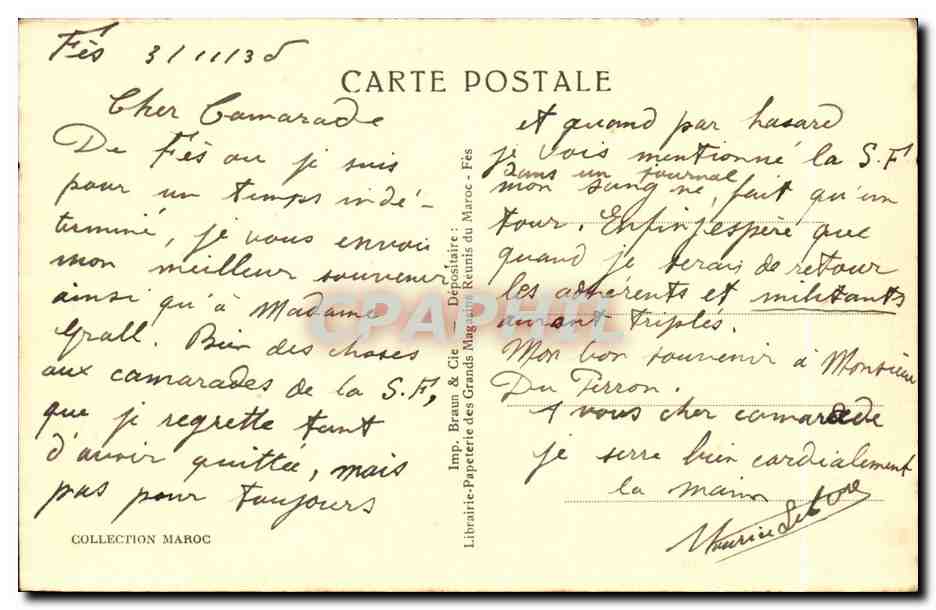 Fès 3/11/35
CARTE POSTALE
Cher Camarade
De Fès ou je suis
pour un temps indé-
terminé, je vous envoie
mon meilleur souvenir
ainsi qu'à Madame
Grall. Bien des choses
aux camarades de la S.F,
que je regrette tant
d'avoir quittée, mais
pas pour toujours
COLLECTION MAROC
Imp. Braun & Cie, Dépositaire :
Librairie-Papeterie des Grands Magasins Réunis du Maroc - Fès
et quand par hasard
je vois mentionné la S.F
dans un journal
mon sang ne fait qu'un
tour. Enfin j'espère que
quand je serai de retour
les adhérents et militants
auront triplés.
Mon bon souvenir à Monsieur
Du Perron.
A vous cher camarade
je serre bien cordialement
la main
Maurice
CPAPHIL